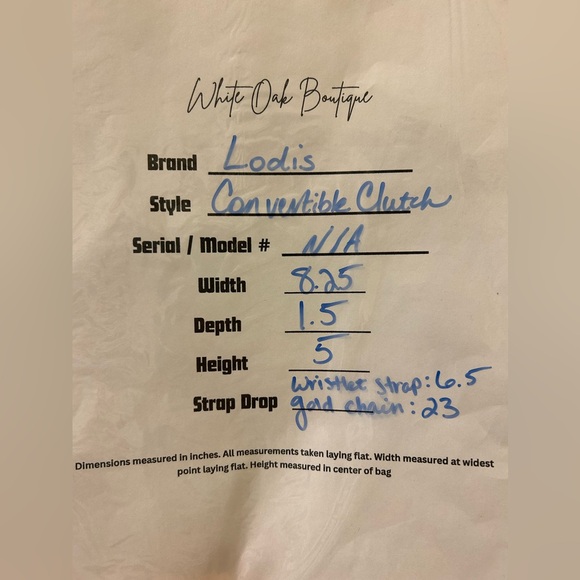 White Oak Boutique
Brand Lodis
Style Convertible Clutch
Serial / Model # N/A
Width 8.25
Depth 1.5
Height 5
wristlet strap: 6.5
Strap Drop gold chain: 23
Dimensions measured in inches. All measurements taken laying flat. Width measured at widest
point laying flat. Height measured in center of bag